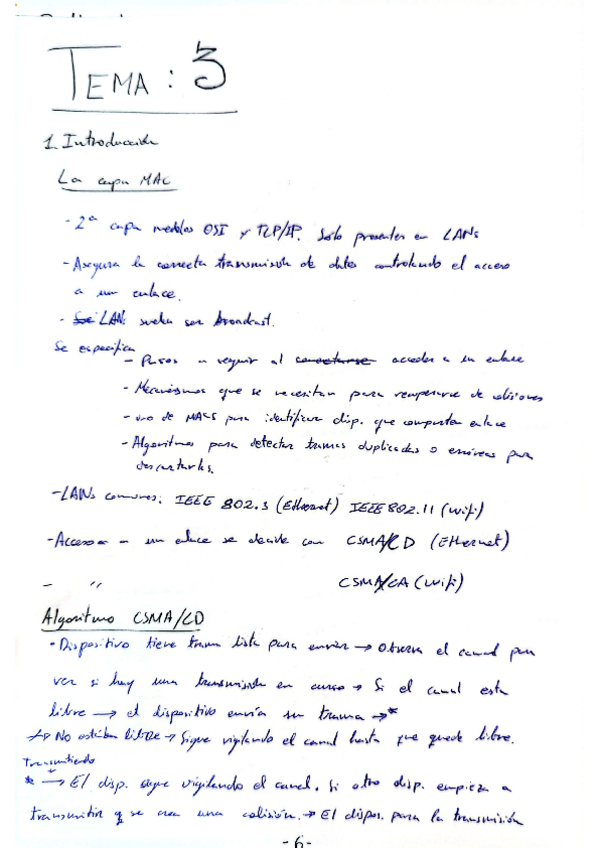 TEMA: 3
1. Introducción
La capa MAC
- 2ª capa modelos OSI y TCP/IP. Solo presentes en LANs
- Asegura la correcta transmisión de datos controlando el acceso
a un enlace.
- LAN suelen ser broadcast.
Se especifica
- Pasos a seguir al conectarse acceder a un enlace
- Mecanismos que se necesitan para recuperarse de colisiones
- uso de MACs para identificar disp. que comparten enlace
- Algoritmos para detectar tramas duplicadas o erróneas para
descartarlas.
- LANs comunes: IEEE 802.3 (Ethernet) IEEE 802.11 (Wifi)
- Accesos a un enlace se decide con CSMA/CD (Ethernet)
- " CSMA/CA (Wifi)
Algoritmo CSMA/CD
- Dispositivo tiene trama lista para enviar → Observa el canal para
ver si hay una transmisión en curso → Si el canal esta
libre → el dispositivo envía su trama → *
→ No está libre → Sigue vigilando el canal hasta que quede libre.
Transmitiendo
* → El disp. sigue vigilando el canal. Si otro disp. empieza a
transmitir y se crea una colisión. → El dispos. para la transmisión
- 6 -